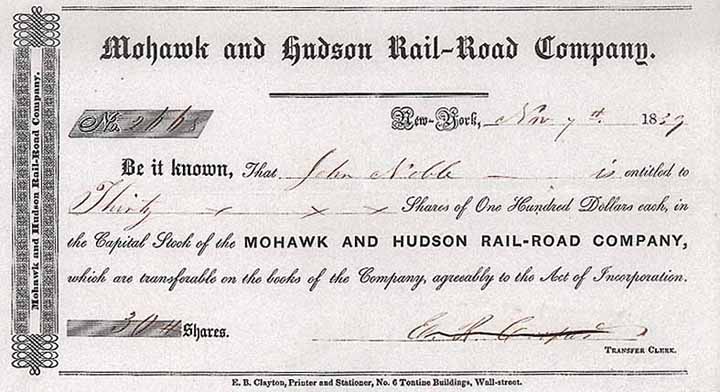 Mohawk and Hudson Rail-Road Company.
Mohawk and Hudson Rail-Road Company.
No. 2668
New-York, Nov 7th 1839
Be it known, That John Noble is entitled to
Thirty x x x Shares of One Hundred Dollars each, in
the Capital Stock of the MOHAWK AND HUDSON RAIL-ROAD COMPANY,
which are transferable on the books of the Company, agreeably to the Act of Incorporation.
Shares.
TRANSFER CLERK.
E. B. Clayton, Printer and Stationer, No. 6 Tontine Buildings, Wall-street.